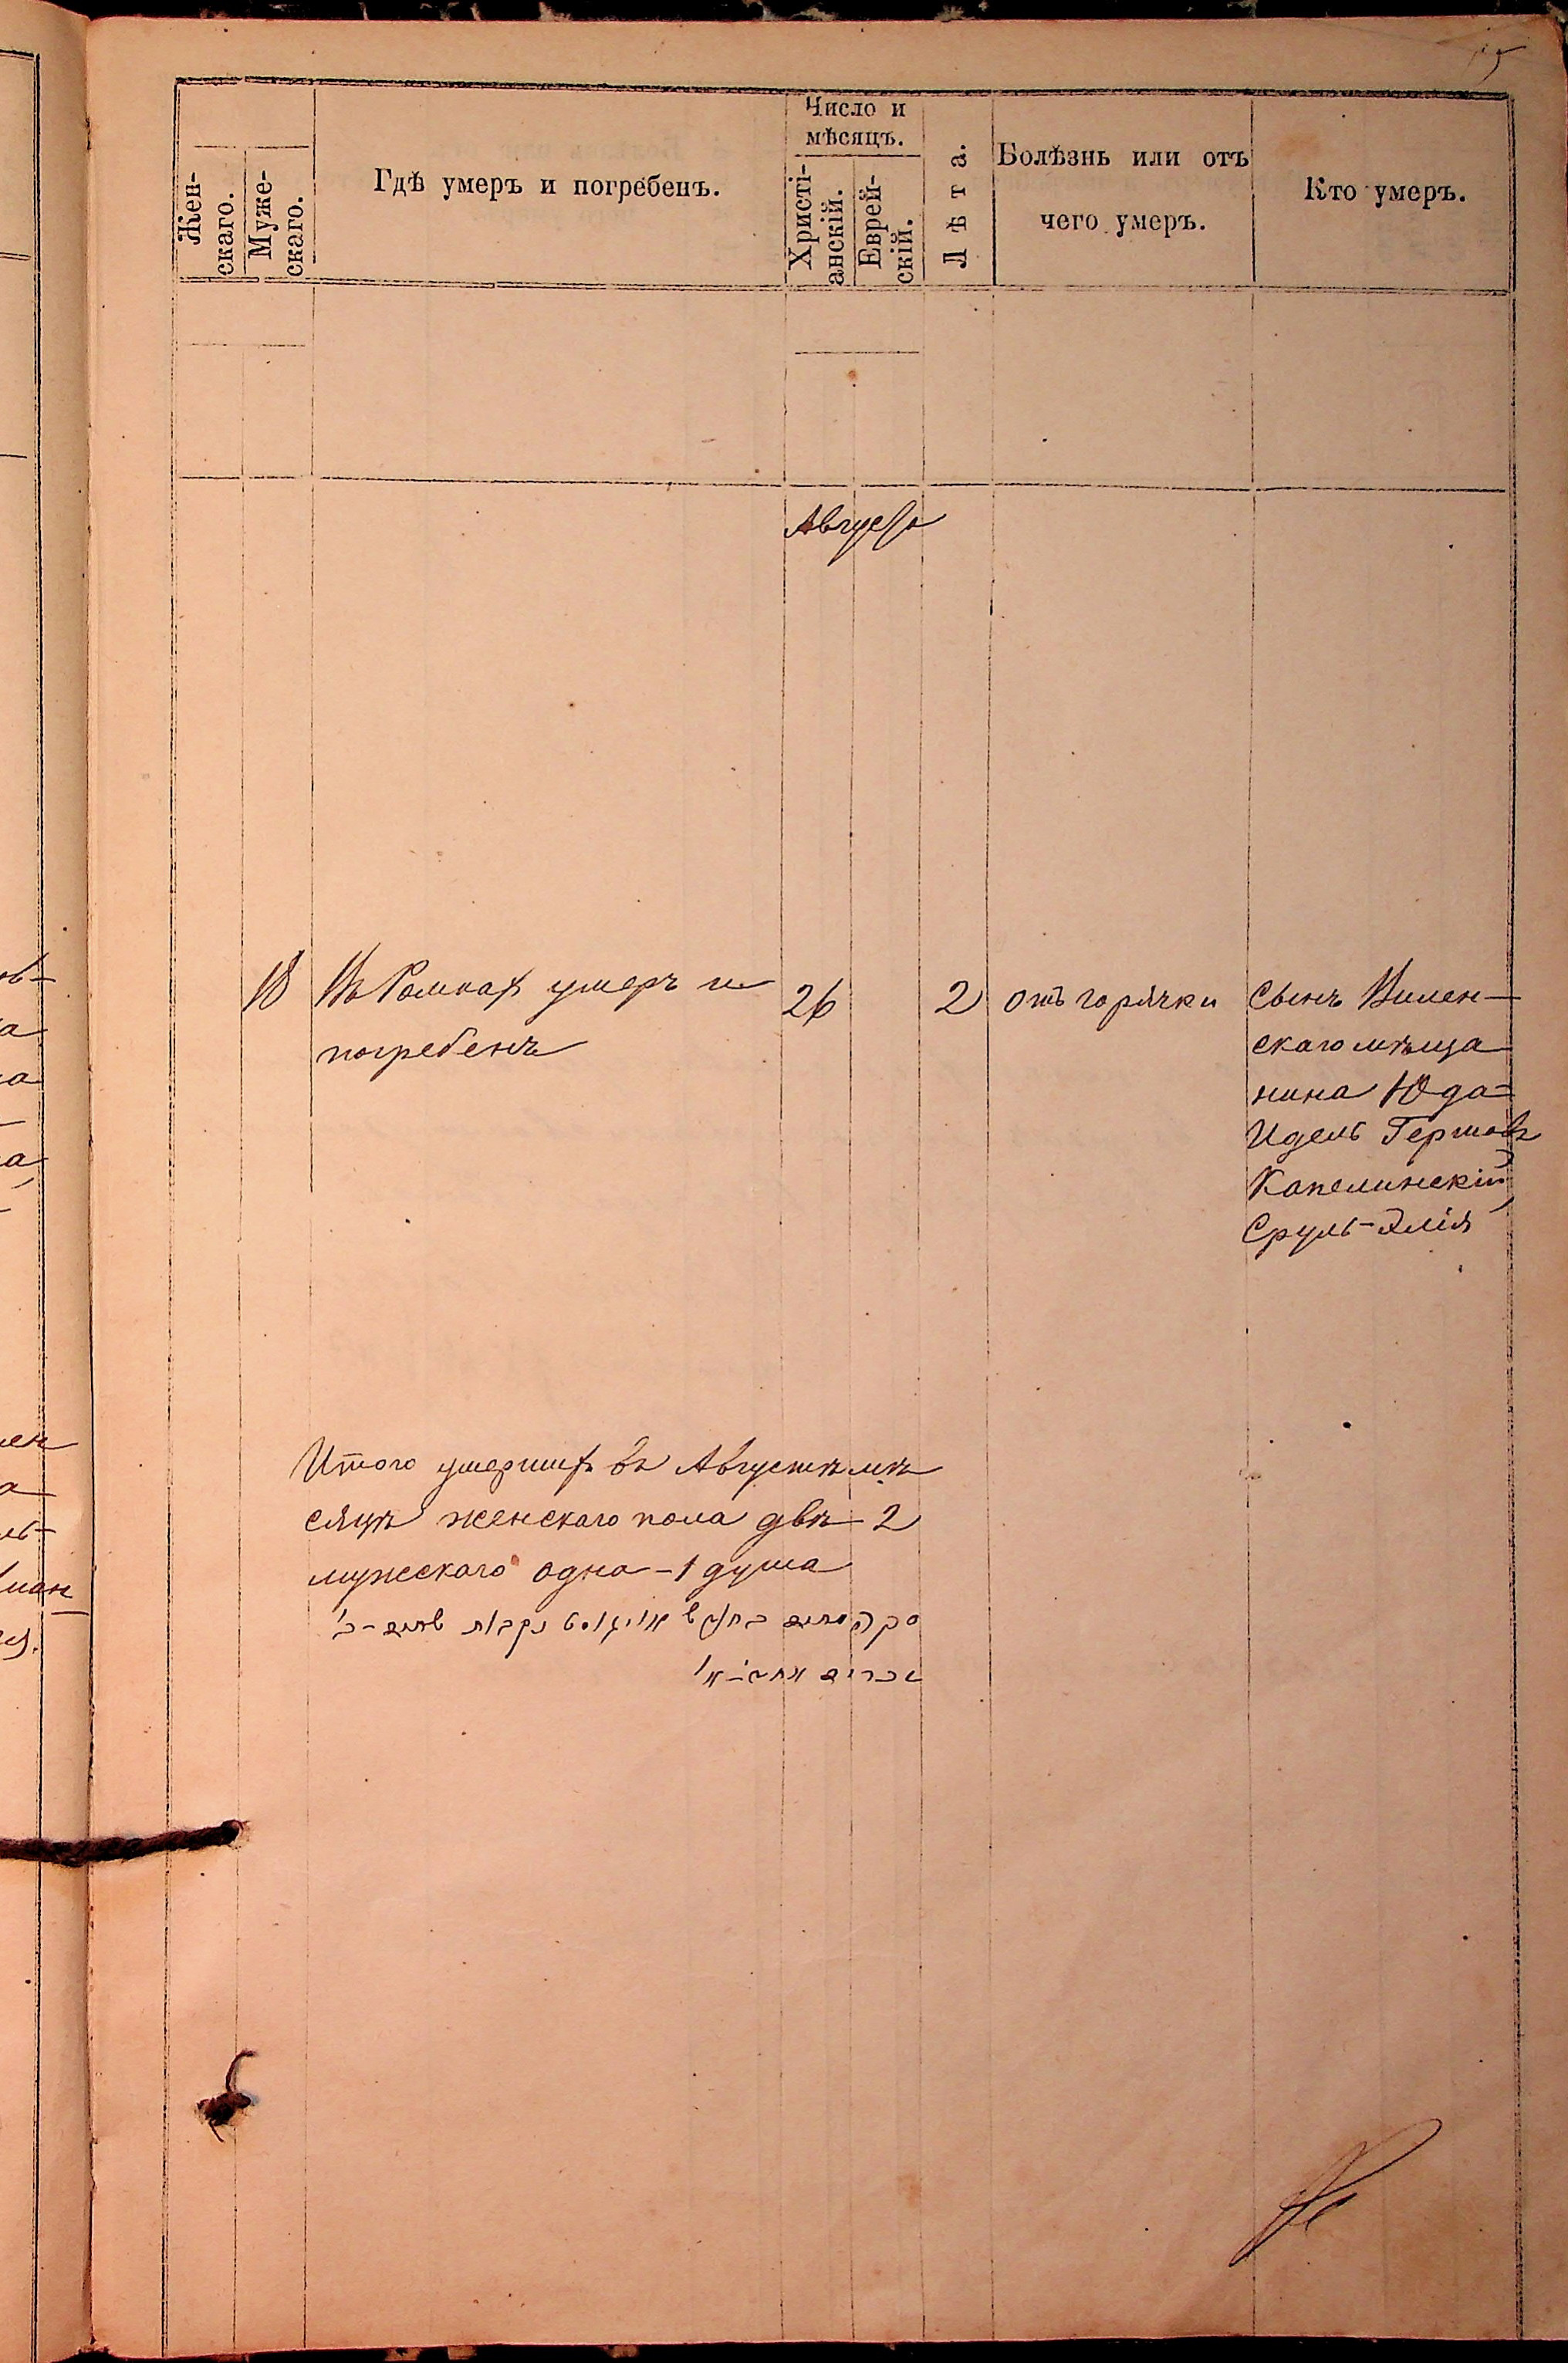 15
Жен-
скаго.
Муже-
скаго.
Гдѣ умеръ и погребенъ.
Число и
мѣсяцъ.
Христі-
анскій.
Еврей-
скій.
Лѣта.
Болѣзнь или отъ
чего умеръ.
Кто умеръ.
Августа
18
Въ Ромнах умеръ и
погребенъ
26
2
отъ горячки
Сынъ Вилен-
скаго мѣща
нина Юда=
Идель Гершовъ
Капелинскій,
Сруль-Элія
Итого умерших въ Августѣ мѣ
сяцѣ женскаго пола двѣ - 2
мужскаго одна - 1 душа